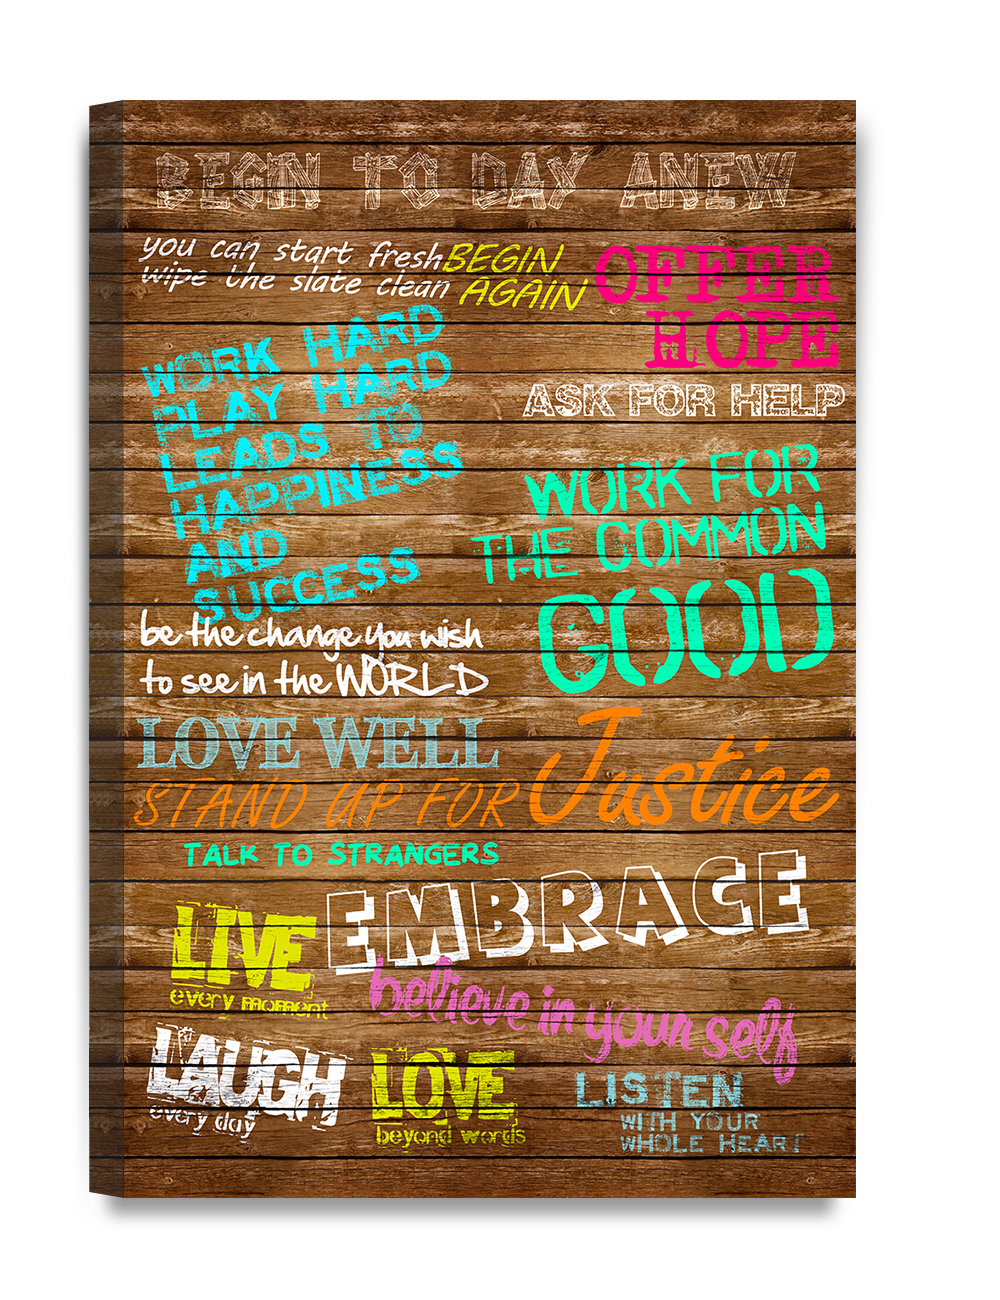 BEGIN TO DAY ANEW
you can start fresh
wipe the slate clean
BEGIN
AGAIN
OFFER
HOPE
ASK FOR HELP
WORK HARD
PLAY HARD
LEADS TO
HAPPINESS
AND
SUCCESS
WORK FOR
THE COMMON
GOOD
be the change you wish
to see in the WORLD
LOVE WELL
STAND UP FOR Justice
TALK TO STRANGERS
EMBRACE
LIVE
every moment
believe in your self
LAUGH
every day
LOVE
beyond words
LISTEN
WITH YOUR
WHOLE HEART